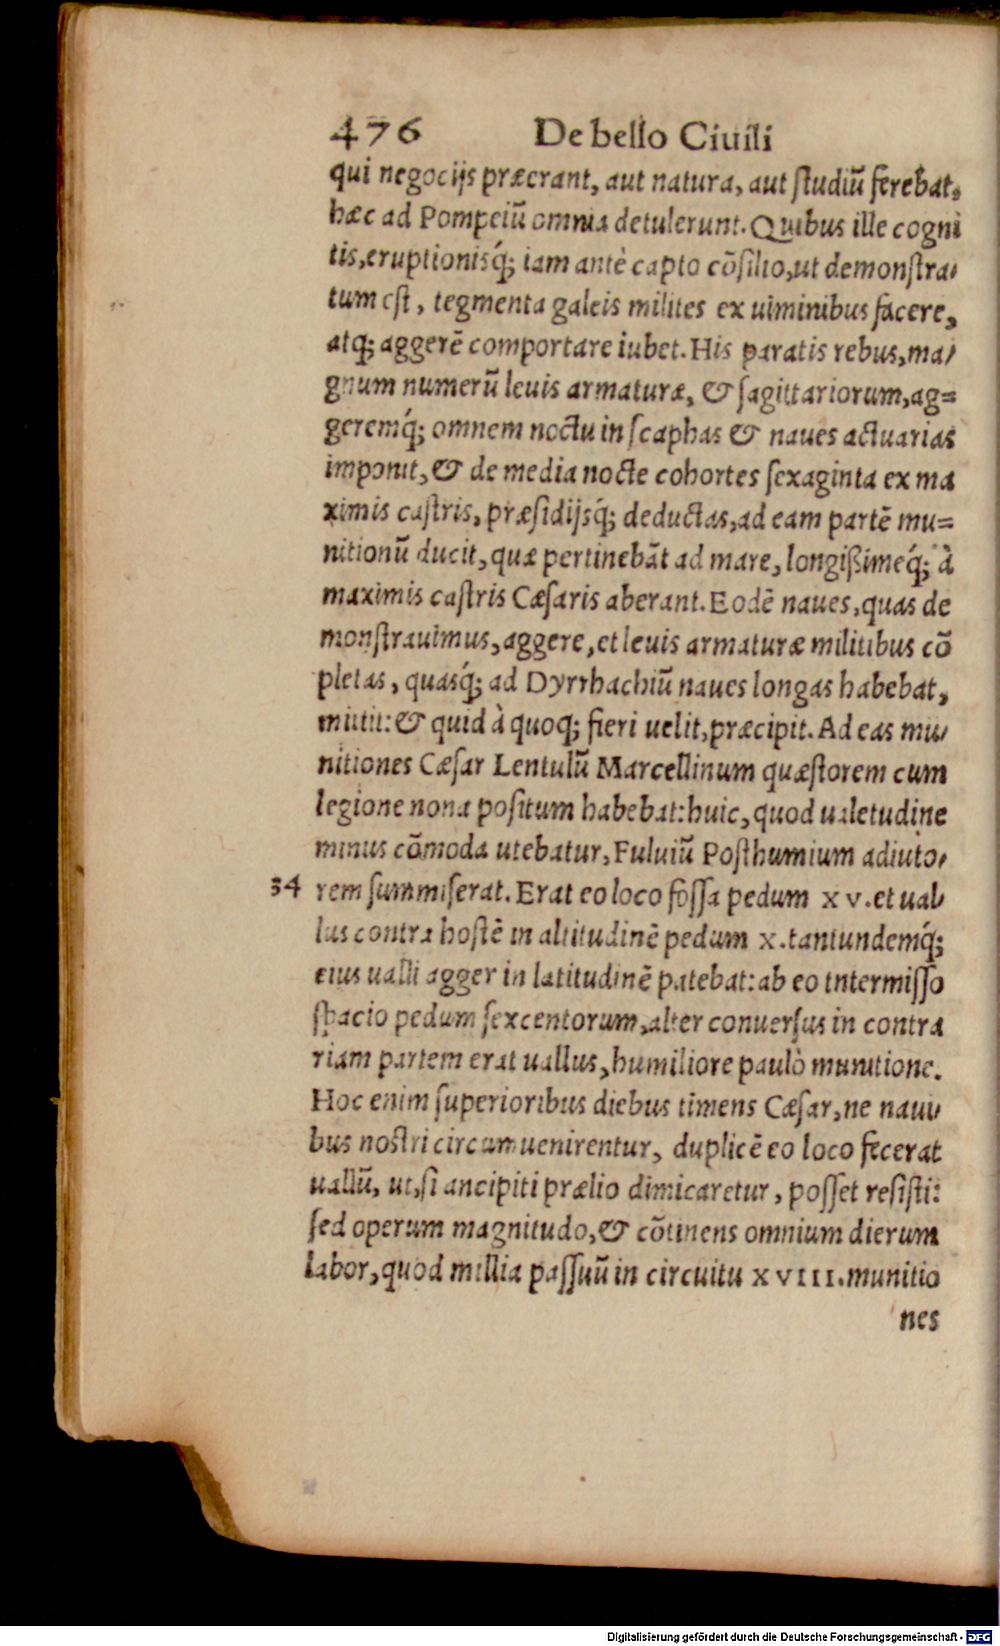 476 De bello Ciuili
qui negocijs præerant, aut natura, aut ſtudiũ ferebat,
hæc ad Pompeiũ omnia detulerunt. Quibus ille cogni
tis, eruptionisq́; iam antè capto cõſilio, ut demonſtra-
tum eſt, tegmenta galeis milites ex uiminibus facere,
atq; aggerẽ comportare iubet. His paratis rebus, ma-
gnum numerũ leuis armaturæ, & ſagittariorum, ag=
geremq́; omnem noctu in ſcaphas & naues actuarias
imponit, & de media nocte cohortes ſexaginta ex ma
ximis caſtris, præſidijsq́; deductas, ad eam partẽ mu=
nitionũ ducit, quæ pertinebãt ad mare, longißimeq́; à
maximis caſtris Cæſaris aberant. Eodẽ naues, quas de
monſtrauimus, aggere, et leuis armaturæ militibus cõ
pletas, quasq́; ad Dyrrhachiũ naues longas habebat,
mittit: & quid à quoq; fieri uelit, præcipit. Ad eas mu-
nitiones Cæſar Lentulũ Marcellinum quæſtorem cum
legione nona poſitum habebat: huic, quod ualetudine
minus cõmoda utebatur, Fuluiũ Poſthumium adiuto-
34 rem ſummiſerat. Erat eo loco foſſa pedum xv. et ual-
lus contra hoſtẽ in altitudinẽ pedum x. tantundemq́;
eius ualli agger in latitudinẽ patebat: ab eo tntermiſſo
ſpacio pedum ſexcentorum, alter conuerſus in contra
riam partem erat uallus, humiliore paulò munitione.
Hoc enim ſuperioribus diebus timens Cæſar, ne naui-
bus noſtri circumuenirentur, duplicẽ eo loco fecerat
uallũ, ut, ſi ancipiti prælio dimicaretur, poſſet reſiſti:
ſed operum magnitudo, & cõtinens omnium dierum
labor, quod millia paſſuũ in circuitu xviii. munitio
nes
Digitalisierung gefördert durch die Deutsche Forschungsgemeinschaft - DFG